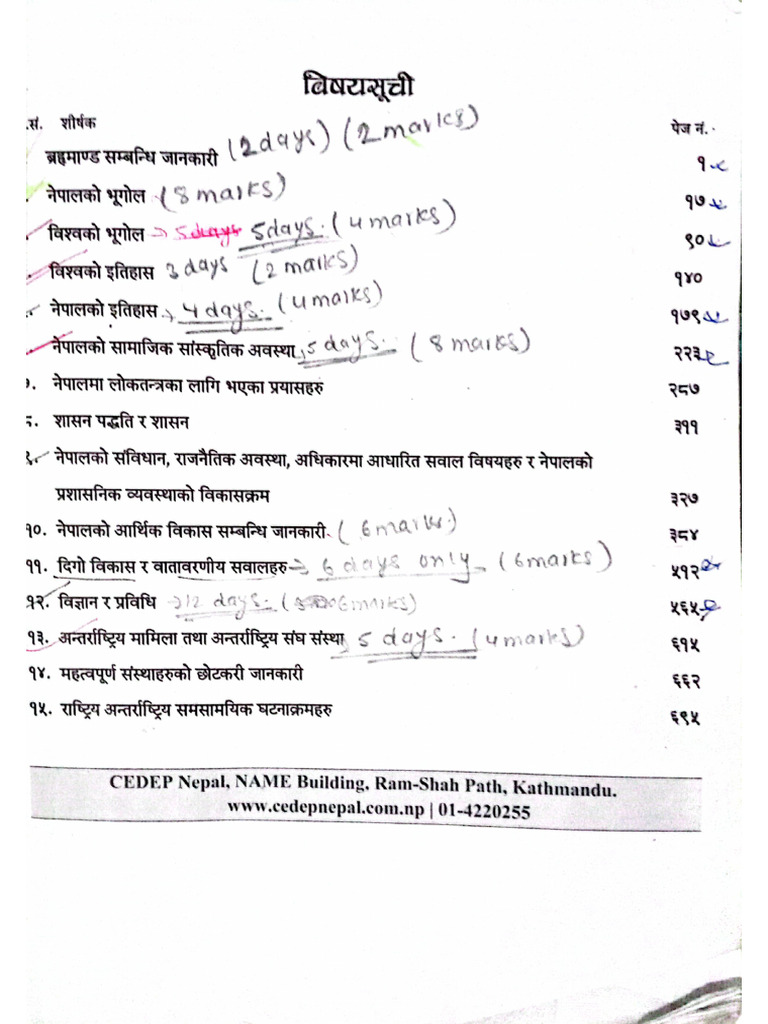 बिषयसूची
.सं. शीर्षक पेज नं.
ब्रह्माण्ड सम्बन्धि जानकारी (2 days) (2 marks) १
नेपालको भूगोल (8 marks) १७
विश्वको भूगोल → 5 days 5 days. (4 marks) ९०
विश्वको इतिहास 3 days (2 marks) १४०
नेपालको इतिहास → 4 days. (4 marks) १७९
नेपालको सामाजिक सांस्कृतिक अवस्था 5 days. (8 marks) २२३
७. नेपालमा लोकतन्त्रका लागि भएका प्रयासहरु २८७
८. शासन पद्धति र शासन ३११
९. नेपालको संविधान, राजनैतिक अवस्था, अधिकारमा आधारित सवाल विषयहरु र नेपालको
प्रशासनिक व्यवस्थाको विकासक्रम ३२७
१०. नेपालको आर्थिक विकास सम्बन्धि जानकारी (6 marks) ३८४
११. दिगो विकास र वातावरणीय सवालहरु → 6 days only (6 marks) ५१२
१२. विज्ञान र प्रविधि → 12 days. (6 marks) ५६५
१३. अन्तर्राष्ट्रिय मामिला तथा अन्तर्राष्ट्रिय संघ संस्था 5 days. (4 marks) ६१५
१४. महत्वपूर्ण संस्थाहरुको छोटकरी जानकारी ६६२
१५. राष्ट्रिय अन्तर्राष्ट्रिय समसामयिक घटनाक्रमहरु ६९५
CEDEP Nepal, NAME Building, Ram-Shah Path, Kathmandu.
www.cedepnepal.com.np | 01-4220255